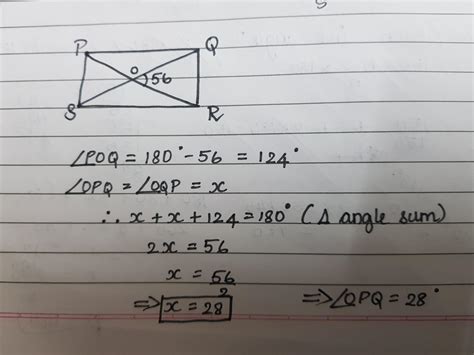 P Q
O 56
S R
∠POQ = 180° - 56 = 124°
∠OPQ = ∠OQP = x
∴ x + x + 124 = 180° (Δ angle sum)
2x = 56
x = 56/2
⇒ x = 28 ⇒ ∠OPQ = 28°